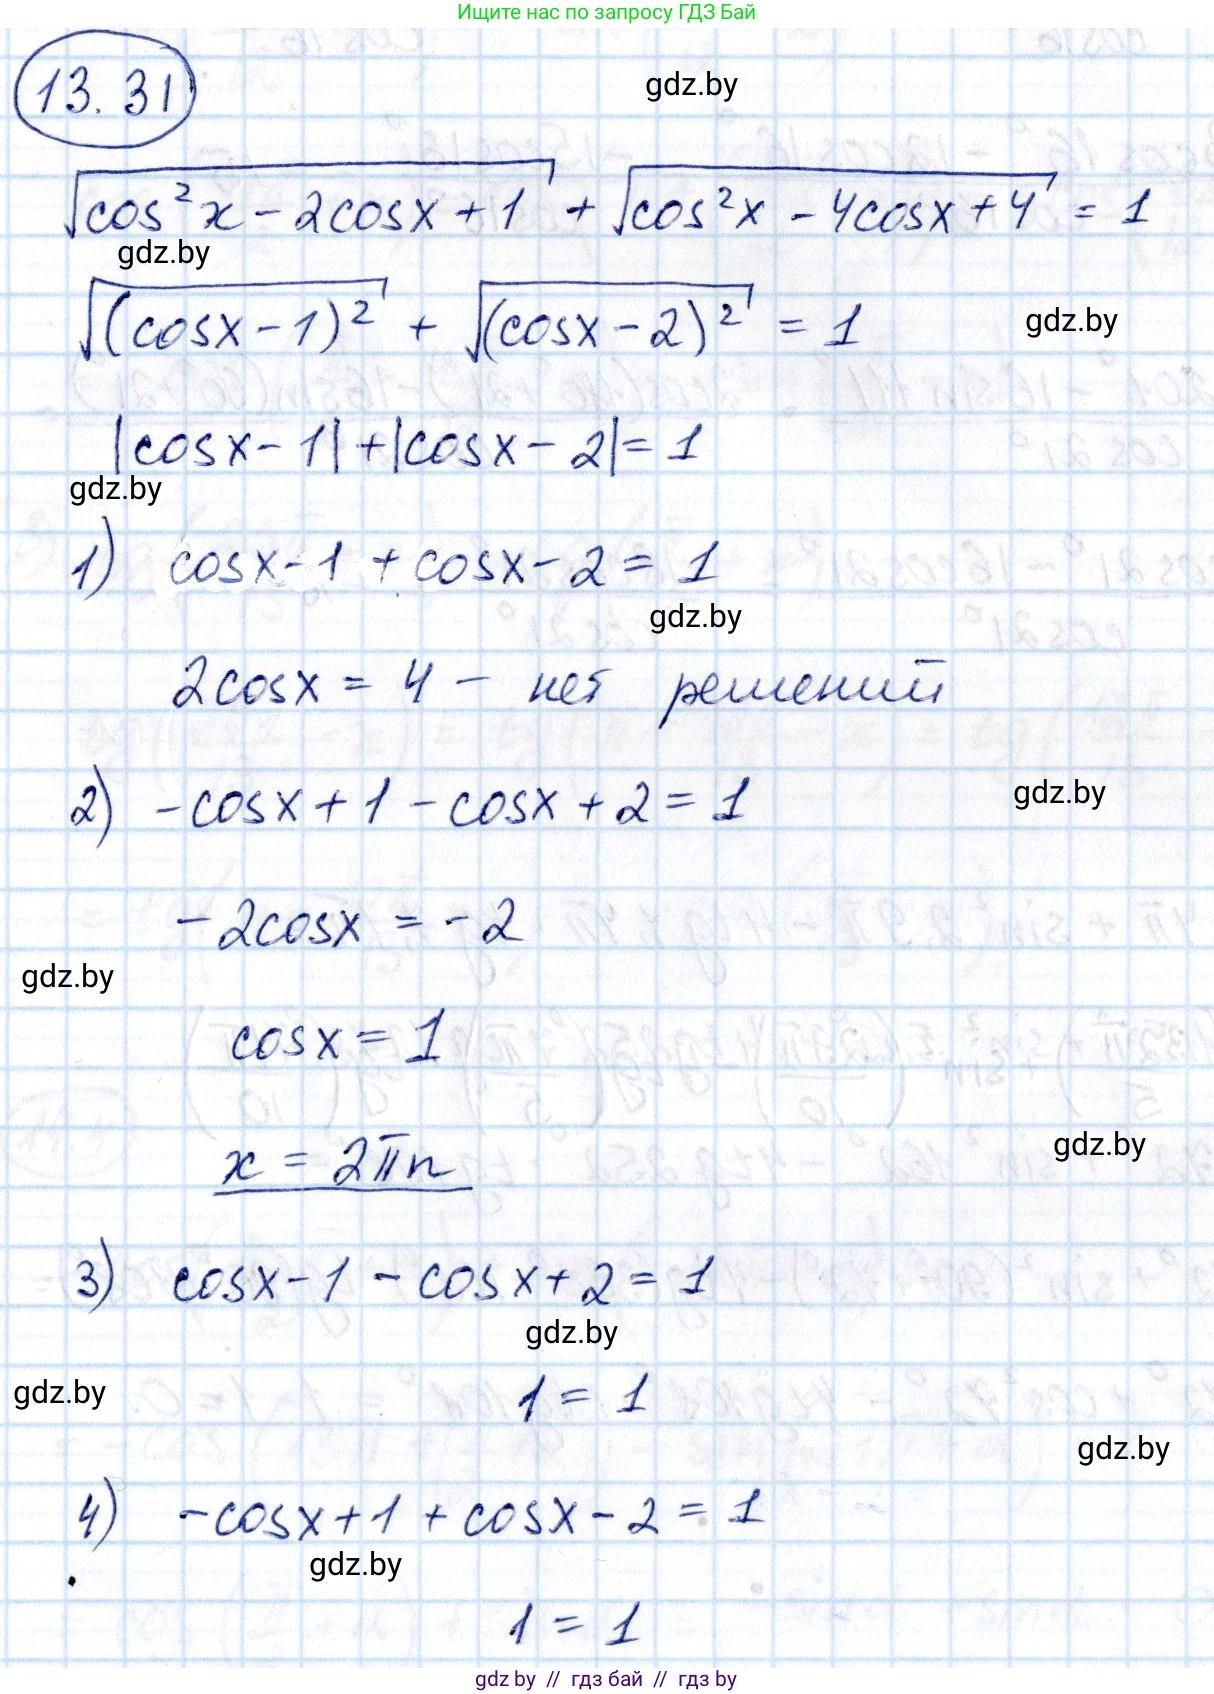 Ищите нас по запросу ГДЗ Бай
13.31
gdz.by
√(cos²x - 2cosx + 1) + √(cos²x - 4cosx + 4) = 1
gdz.by
√((cosx - 1)²) + √((cosx - 2)²) = 1
gdz.by
|cosx - 1| + |cosx - 2| = 1
gdz.by
1) cosx - 1 + cosx - 2 = 1
gdz.by
2cosx = 4 - нет решений
2) -cosx + 1 - cosx + 2 = 1
gdz.by
-2cosx = -2
gdz.by
cosx = 1
x = 2πn
gdz.by
3) cosx - 1 - cosx + 2 = 1
gdz.by
1 = 1
gdz.by
gdz.by
4) -cosx + 1 + cosx - 2 = 1
gdz.by
1 = 1
gdz.by // гдз бай // гдз by